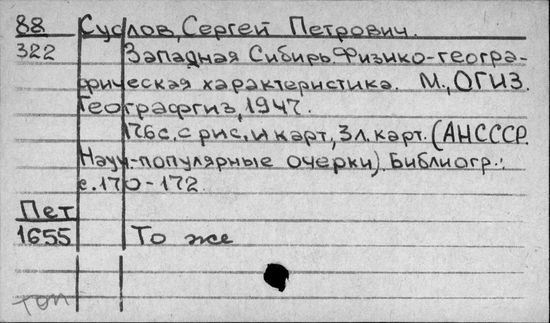 88 Суслов, Сергей Петрович.
322 Западная Сибирь. Физико-геогра-
фическая характеристика. М., ОГИЗ.
Географгиз, 1947.
176с. с рис. и карт., 3л. карт. (АНСССР.
Науч-популярные очерки). Библиогр.:
с.170-172.
Пет
1655 То же
топ